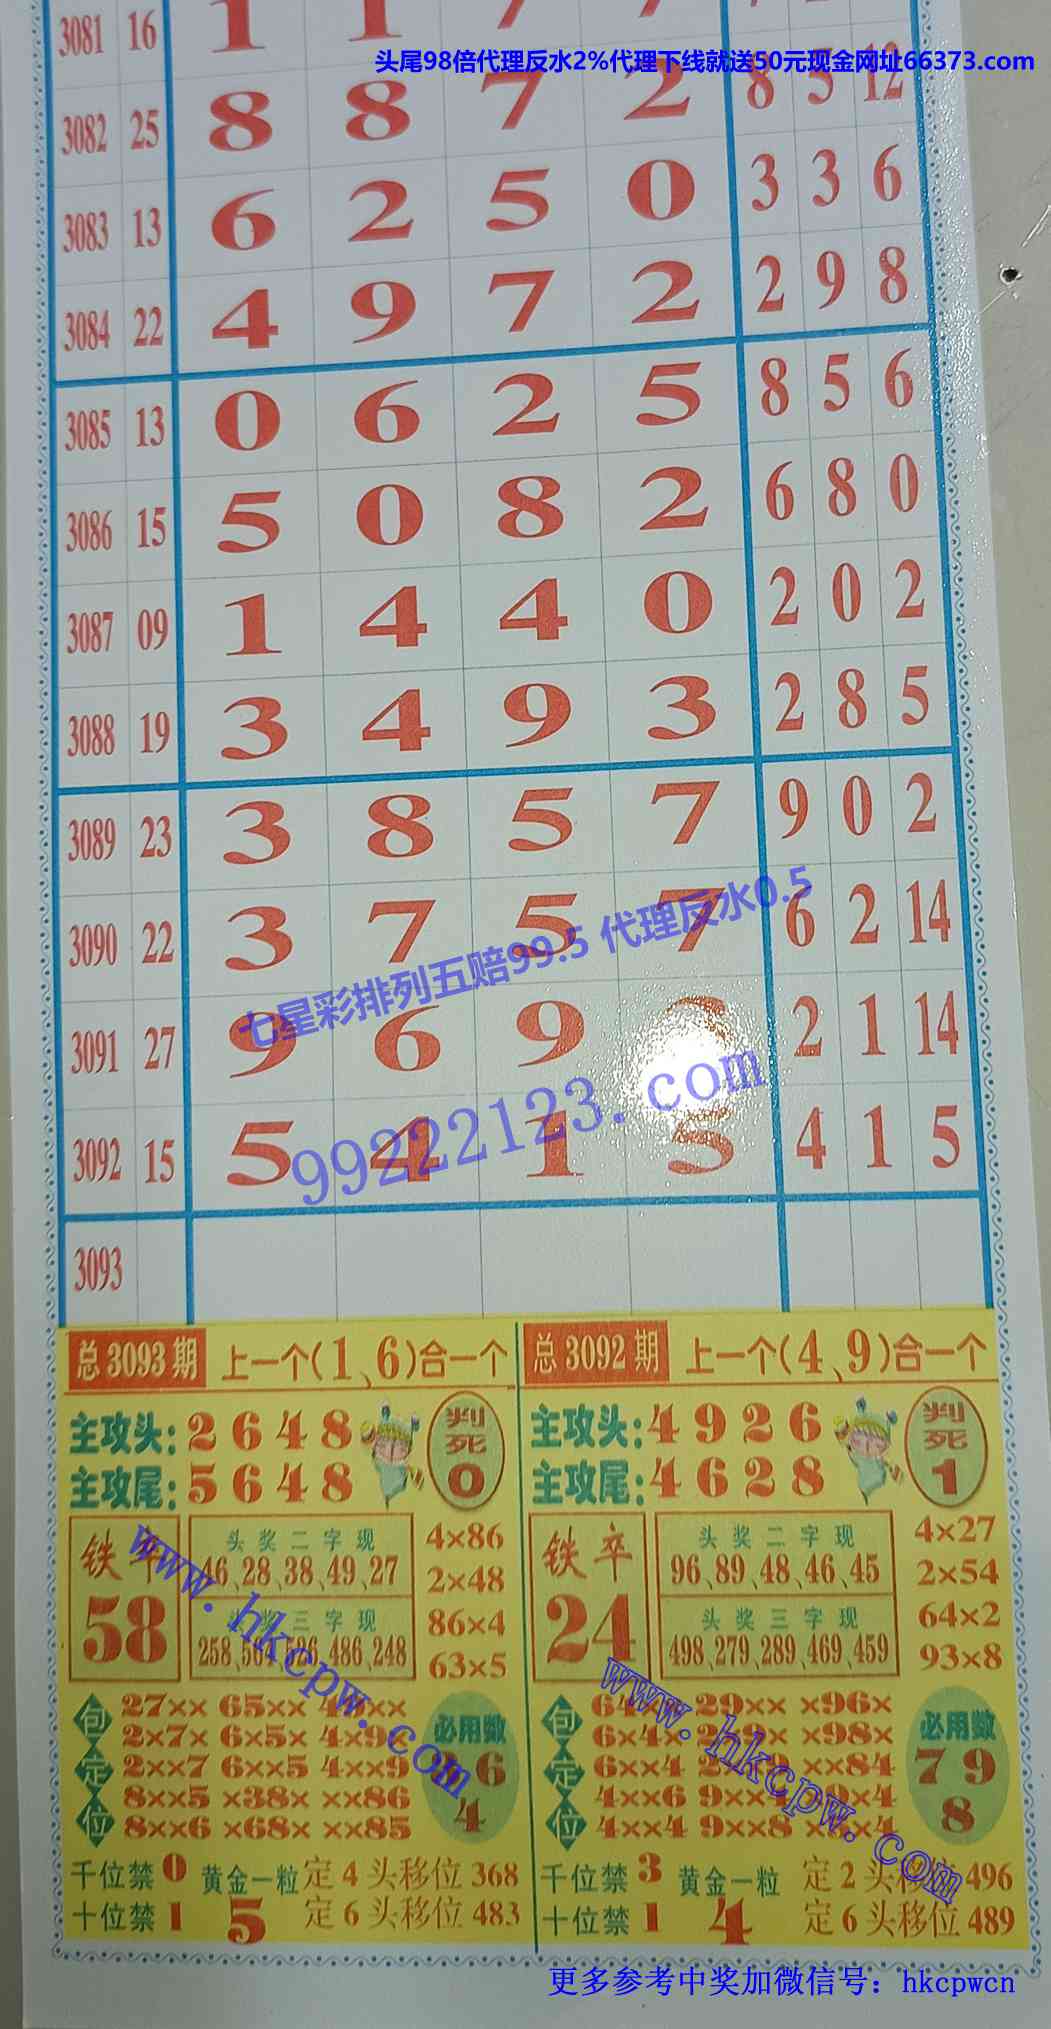 3081 16 1 1 7 7 7 2
头尾98倍代理反水2%代理下线就送50元现金网址66373.com
3082 25 8 8 7 2 8 5 12
3083 13 6 2 5 0 3 3 6
3084 22 4 9 7 2 2 9 8
3085 13 0 6 2 5 8 5 6
3086 15 5 0 8 2 6 8 0
3087 09 1 4 4 0 2 0 2
3088 19 3 4 9 3 2 8 5
3089 23 3 8 5 7 9 0 2
3090 22 3 7 5 7 6 2 14
七星彩排列五赔99.5 代理反水0.5
3091 27 9 6 9 2 1 14
99222123.com
3092 15 5 4 1 5 4 1 5
3093
总3093期 上一个(1、6)合一个
主攻头:2648
主攻尾:5648
判死0
铁卒
58
头奖二字现
46、28、38、49、27
头奖三字现
486、248
4×86
2×48
86×4
63×5
包定位
27×× 65××
2×7× 6×5× 4×9×
2××7 6××5 4××9
8××5 ×38× ××86
8××6 ×68× ××85
必用数
6
4
千位禁0
十位禁1
黄金一粒
5
定4头移位368
定6头移位483
总3092期 上一个(4、9)合一个
主攻头:4926
主攻尾:4628
判死1
铁卒
24
头奖二字现
96、89、48、46、45
头奖三字现
498、279、289、469、459
4×27
2×54
64×2
93×8
包定位
29×× ×96×
6×4× ×98×
6××4 ××84
4××6
4××4 9××8
必用数
79
8
千位禁3
十位禁1
黄金一粒
4
定2头移位496
定6头移位489
www.hkcpw.com
www.hkcpw.com
更多参考中奖加微信号：hkcpwcn